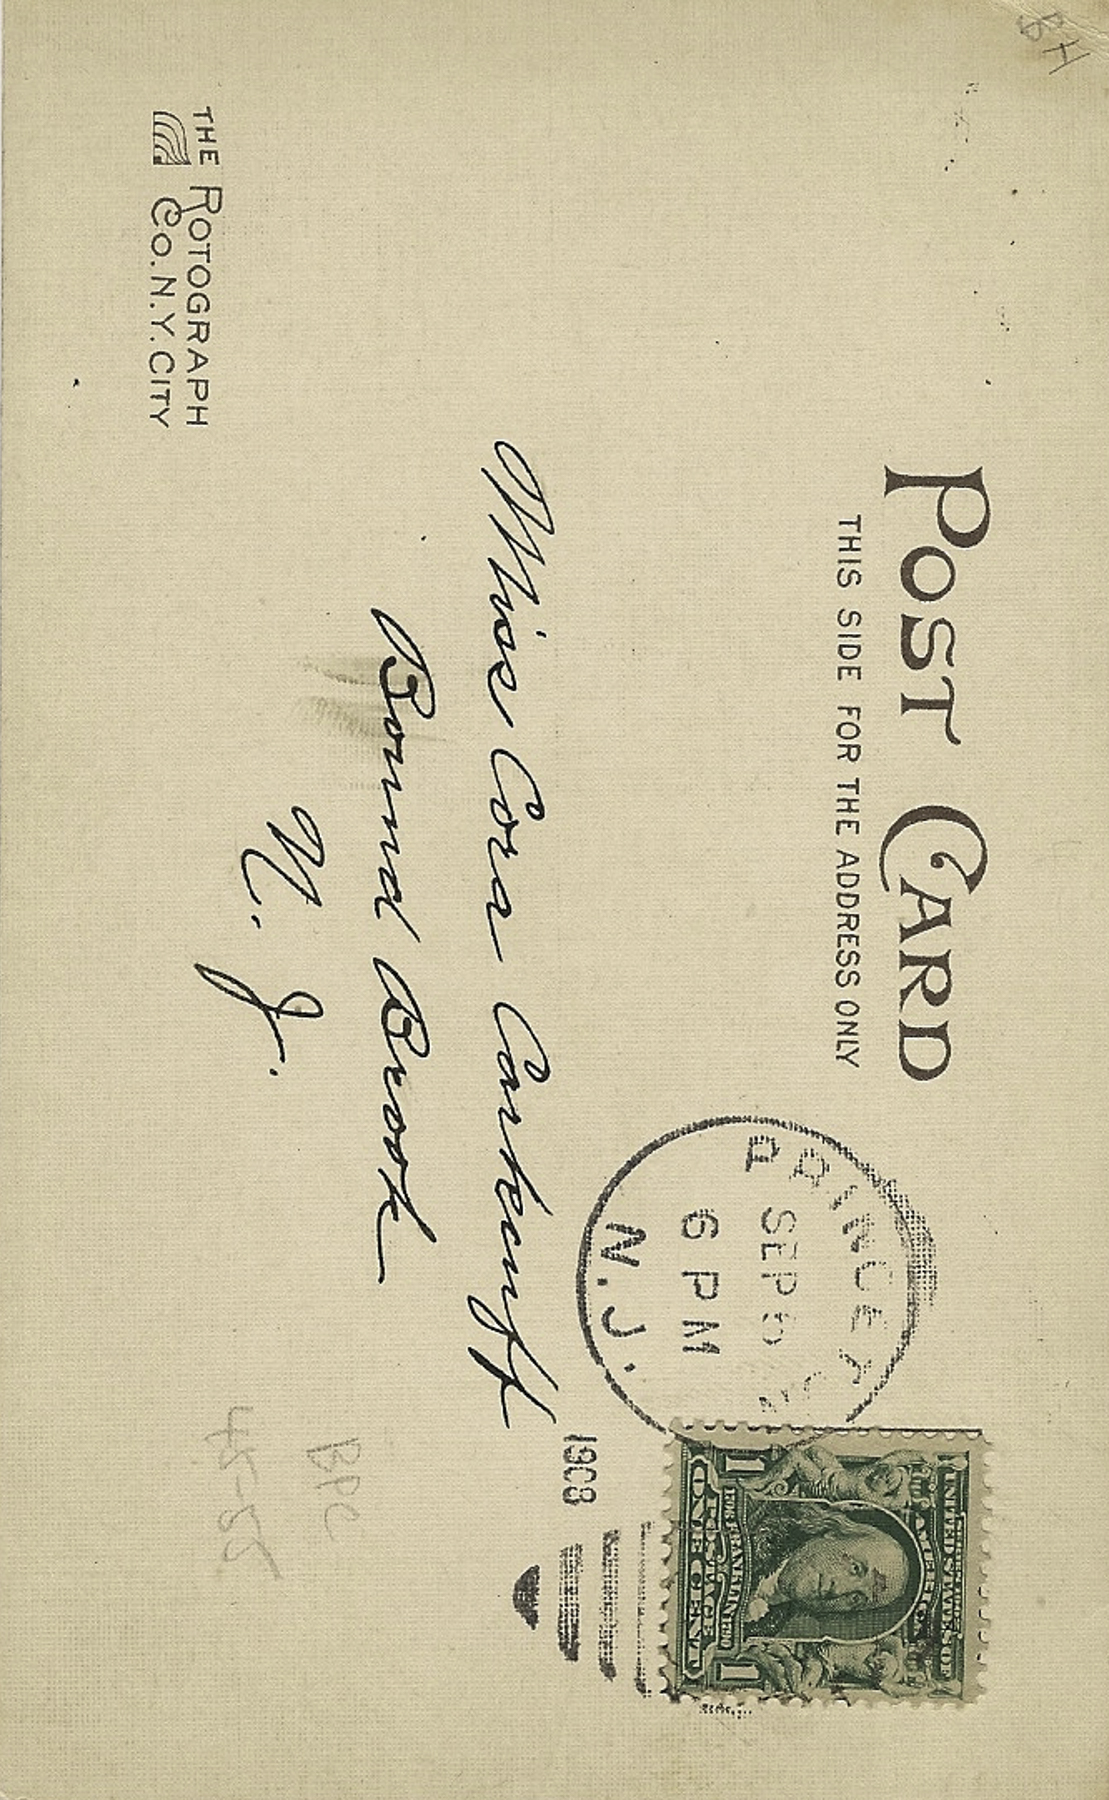 POST CARD
THIS SIDE FOR THE ADDRESS ONLY
SEP
6 PM
N.J.
1908
UNITED STATES OF AMERICA
FRANKLIN
POSTAGE
1 ONE CENT 1
Miss Cora Carkhuff
Bound Brook
N. J.
THE ROTOGRAPH
CO. N.Y. CITY
BH
BPC